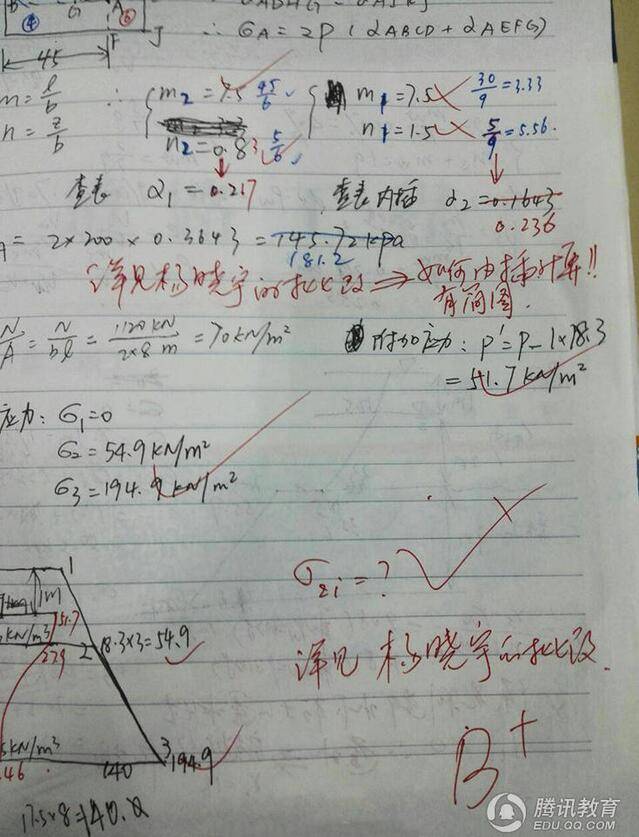 ∴ σA = 2P(αABCD + αAEFG)
45
m = l/b ∴ m2 = 7.5 45/6 m1 = 7.5 30/9 = 3.33
n = z/b n2 = 0.83 5/6 n1 = 1.5 5/9 = 5.56
查表 α1 = 0.217 查表内插 α2 = 0.1643
0.236
= 2×200×0.3643 = 145.72kpa
181.2
详见杨晓宇的批改 ⇒ 如何内插计算!!
有简图.
N/A = N/bl = 1120KN/2×8m = 70KN/m² 附加应力: P' = P-1×18.3
= 51.7KN/m²
应力: σ1=0
σ2 = 54.9KN/m²
σ3 = 194.9KN/m²
σzi = ?
1
1m
51.7
KN/m³
2 18.3×3=54.9
详见 杨晓宇的批改.
B+
KN/m³
3 194.9
140
17.5×8=140.0
腾讯教育
EDU.QQ.COM